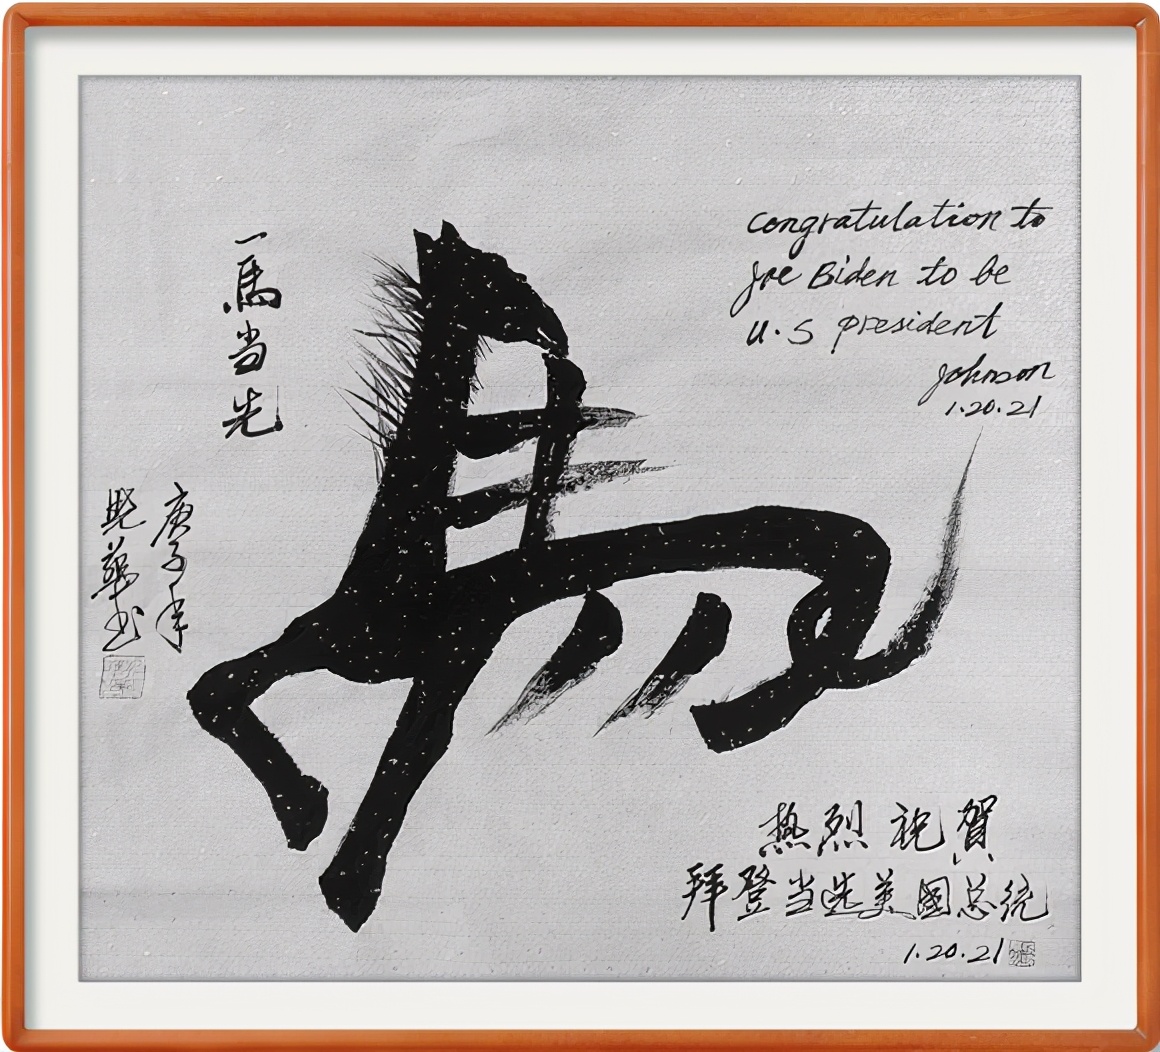 一馬当先
庚子年
熙華书
congratulation to
Joe Biden to be
U.S president
Johnson
1.20.21
热烈祝賀
拜登当选美國总统
1.20.21